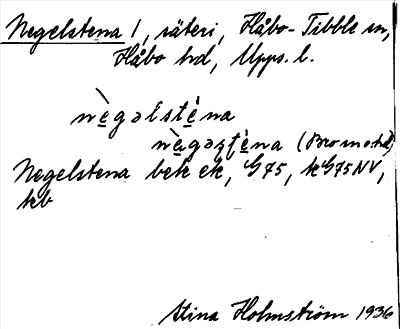 Negelstena 1, säteri, Håbo-Tibble sn,
Håbo hd, Upps. l.
nègəlsténa
nä̀gəʂʈéna (Bromsten)
Negelstena bek ek, G75, kG75NV,
kb
Stina Holmström 1936